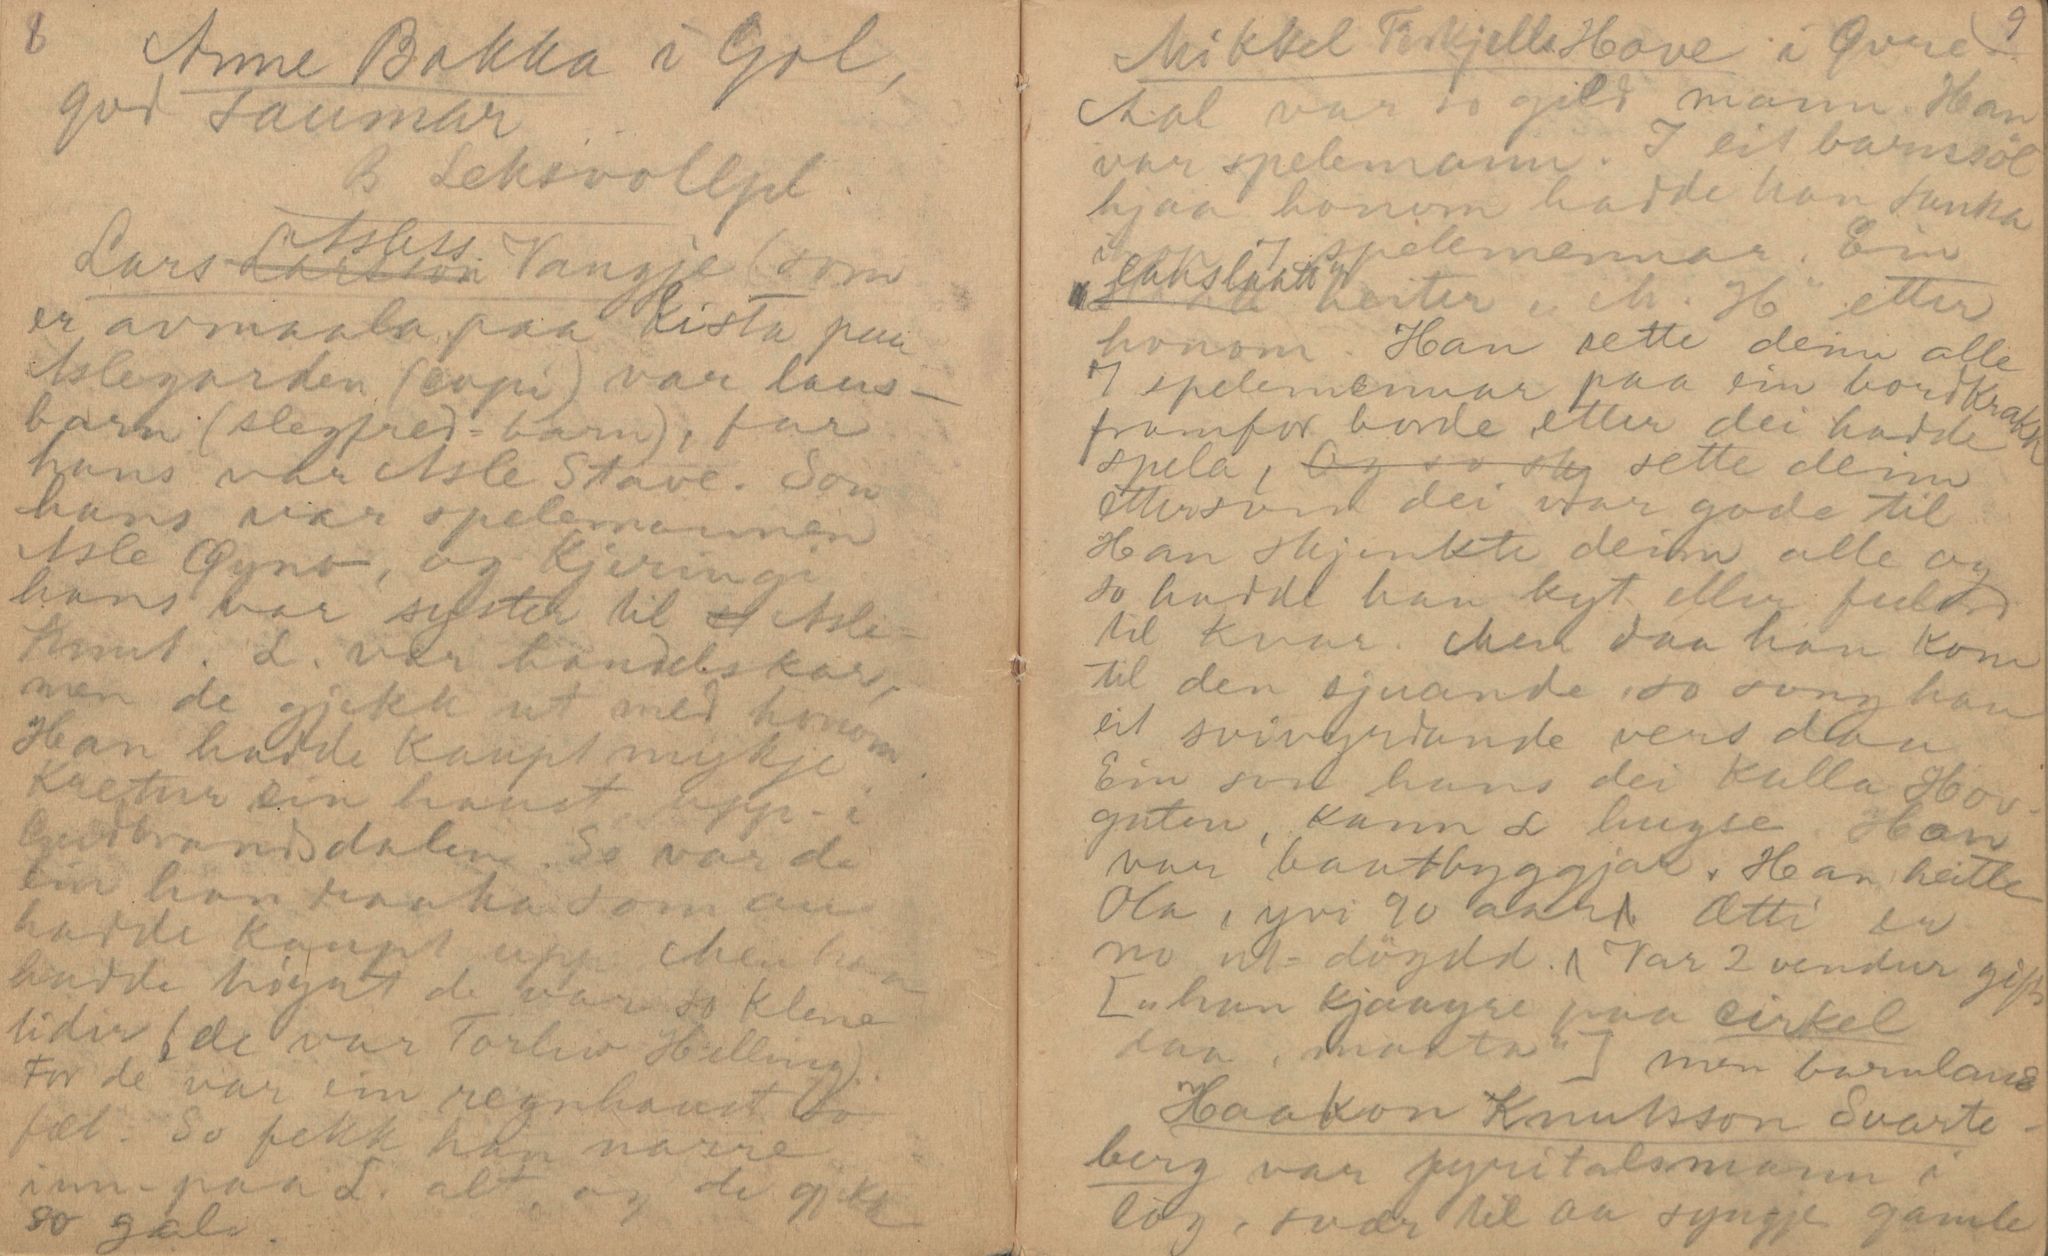 8
Anne Bakka i Gol,
god saumar
B Leksvollpl.
Asless
Lars Larsson Vangje (som
er avmaala paa kista paa
Aslegarden (copi) var laus-
barn (slegfred-barn), far
hans var Asle Stave. Son
hans var spelemannen
Asle Øyno, og Kjeringi
hans var syster til Asle-
Knut. L. var handelskar,
men de gjekk ut med honom
Han hadde kaupt mykje
kretur ein haust upp-i
Gudbrandsdalen. So var de
ein han raaka som au
hadde kaupt upp. Men han
hadde höyrt de var so klene
tider (de var Torleiv Helling).
For de var ein regnhaust so
fæl. So fekk han narre
inn-paa L. alt, og de gjekk
so gale.
9
Mikkel Torkjells Hove i Øvre
Aal var so gild mann. Han
var spelemann. I eit barnsöl
hjaa honom hadde han sanka
i 7 spelemennar. Ein
laksluatt
heiter "M. H" etter
honom. Han sette deim alle
7 spelemennar paa ein bordkrakk
framfor borde etter dei hadde
spela, Og so sette deim
ettersom dei var gode til
Han skjenkte deim alle og
so hadde han kyt eller
til kvar. Men daa han kom
til den sjuande, so song han
eit svivyrdande vers daa
Ein son hans dei kalla Hov-
guten, kann L hugse. Han
var baatbyggjar. Han heitte
Ola, yvi 90 aar. Ætti er
no ut-döydd. (Var 2 vendur gift
["han kjaagse paa cirkel
daa, maata"] men barnlaus
Haakon Knutsson Svarte-
berg var pyritalsmann i
lög, svær til aa syngje gamle